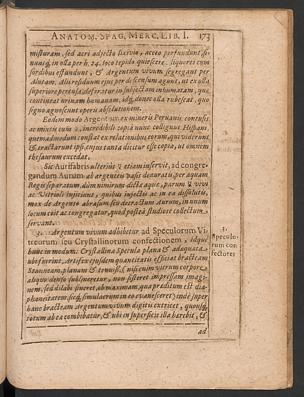 ANATOM. SPAG. MERC. LIB. I. 173
misturam, sed acri adjecto lixivio, aceto perfundunt, si-
nuntq; in olla per h. 24. loco tepido quiescere. liquores cum
sordibus effundunt, & Argentum vivum segregant per
Alutam. Alii residuum ejus per descensum agunt, ut ex olla
superiore perusta desfratur in subjectam inhumatam, quæ
contineat urinam humanam, idq; donec olla rubescat, quo
signo agnoscunt operis absolutionem.
Eodem modo Argentum ex mineris
ac mixtis cum incredibili copia nunc colligunt Hispani,
quemadmodum constat ex relationibus eorum, qui viderunt
& tractarunt ipsi, cujus tanta dicitur esse copia, ut omnem
thesaurum excedat.
Sic Aurifabris ulterius etiam inservit, ad congre-
gandum Aurum ab argenteis vasis deauratis, per aquam
Regis separatum, dum nimirum dicta aqua, parum
ac Vitrioli injiciunt, quibus injectis ac in ea dissolutis,
mox de Argento abrasum seu detractum Aurum, in unum
locum coit ac congregatur, quod postea studiose collectum
servant.
3. Argentum vivum adhibetur ad Speculorum Vi-
treorum seu Crystallinorum confectionem, idque
hunc in modum: Crystallina Specula plana & adæquata
ubi fuerint, Artifex ejusdem quantitatis efficiat bracteam
Stanneam, planam & tenuissimam
aliquo denso subjungatur, non sisteret impressam imagi-
nem, sed dilabi sineret, ob maximam, qua præditum est dia-
phaneitatem, sicq; simulacrum in eo evanesceret; inde super
hanc bracteam Argentum vivum digitis extricet, quousq;
totum ab ea combibatur, & ubi in superficie illa hærebit, &
ad
3.
Speculo-
rum con-
fectores